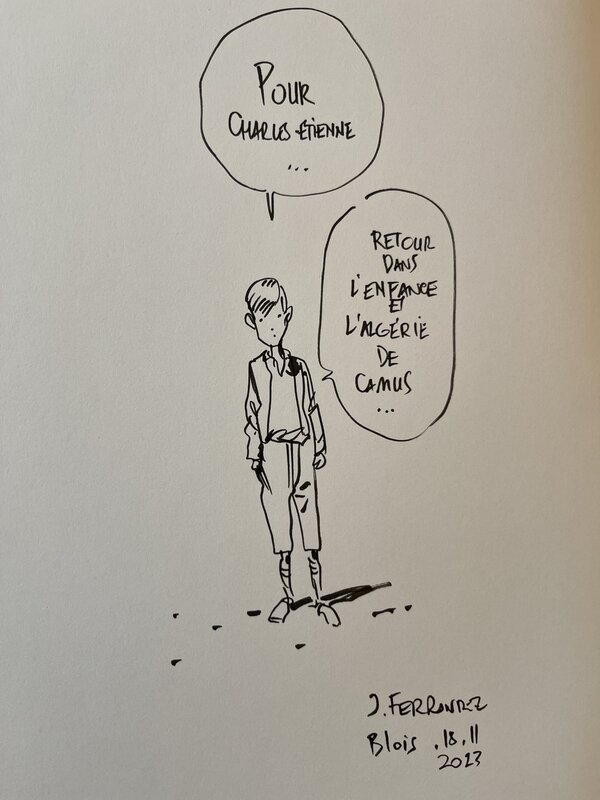 POUR
CHARLES-ÉTIENNE
...
RETOUR
DANS
L'ENFANCE
ET
L'ALGÉRIE
DE
CAMUS
...
J. FERRANDEZ
Blois .18.11
2023